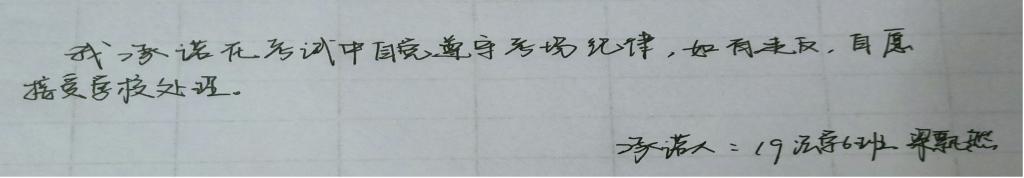 我承诺在考试中自觉遵守考场纪律,如有违反,自愿
接受学校处理。
承诺人:19法学6班 梁飘然